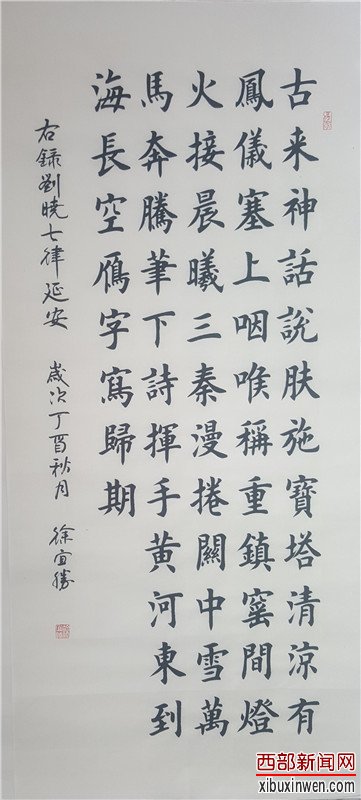 古来神話説肤施寶塔清涼有
鳳儀塞上咽喉稱重鎮窑間燈
火接晨曦三秦漫捲關中雪萬
馬奔騰筆下詩揮手黄河東到
海長空鴈字寫歸期
右録劉曉七律延安 歲次丁酉秋月 徐宜勝
西部新闻网
xibuxinwen.com